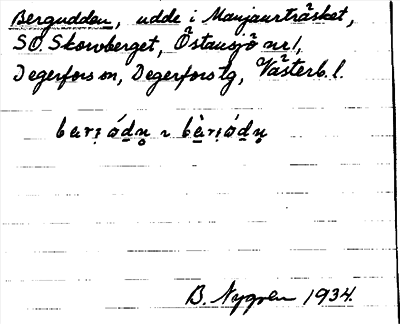 Bergudden, udde i Manjaurträsket,
SO Skovberget, Östansjö nr 1,
Degerfors sn, Degerfors tg, Västerb. l.
B. Nygren 1934.